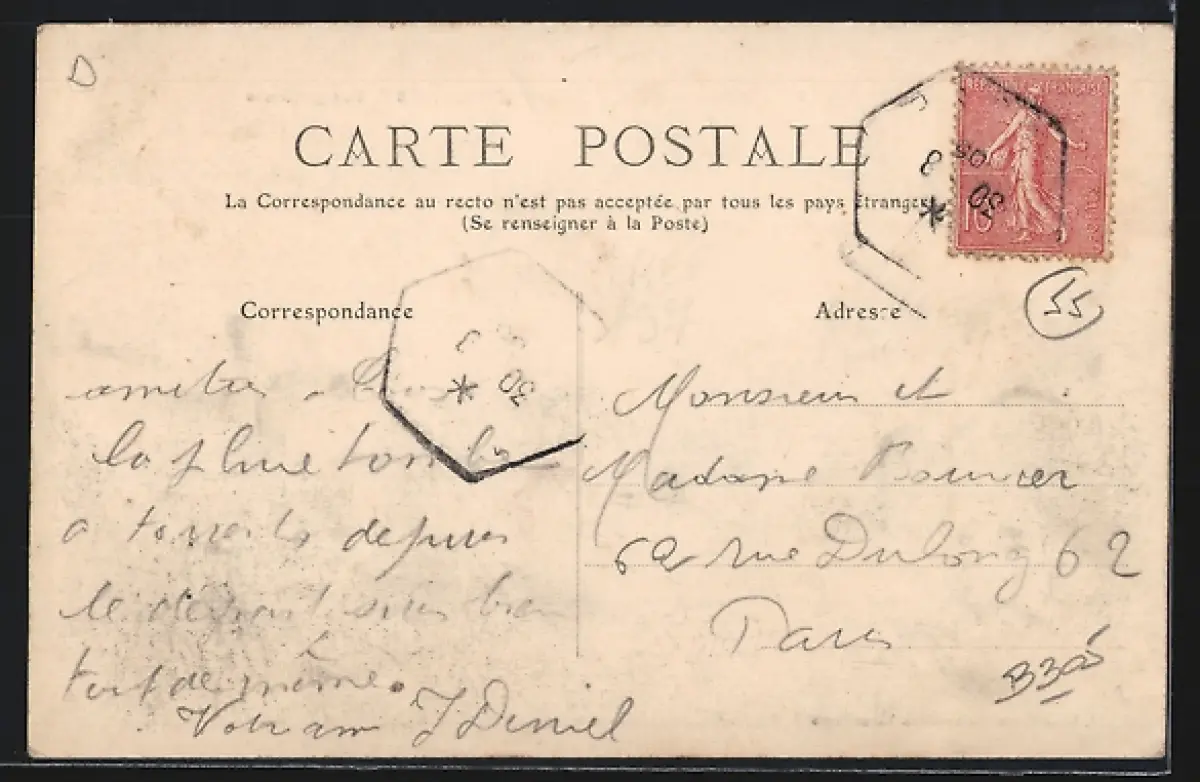 D
CARTE POSTALE
La Correspondance au recto n'est pas acceptée par tous les pays étrangers
(Se renseigner à la Poste)
Correspondance
Adresse
55
10
8
30
30
amitiés
la pluie tombe
a torrents depuis
le départ
tout de même.
Votre ami J Deniel
Monsieur et
Madame
62 rue Dulong 62
Paris